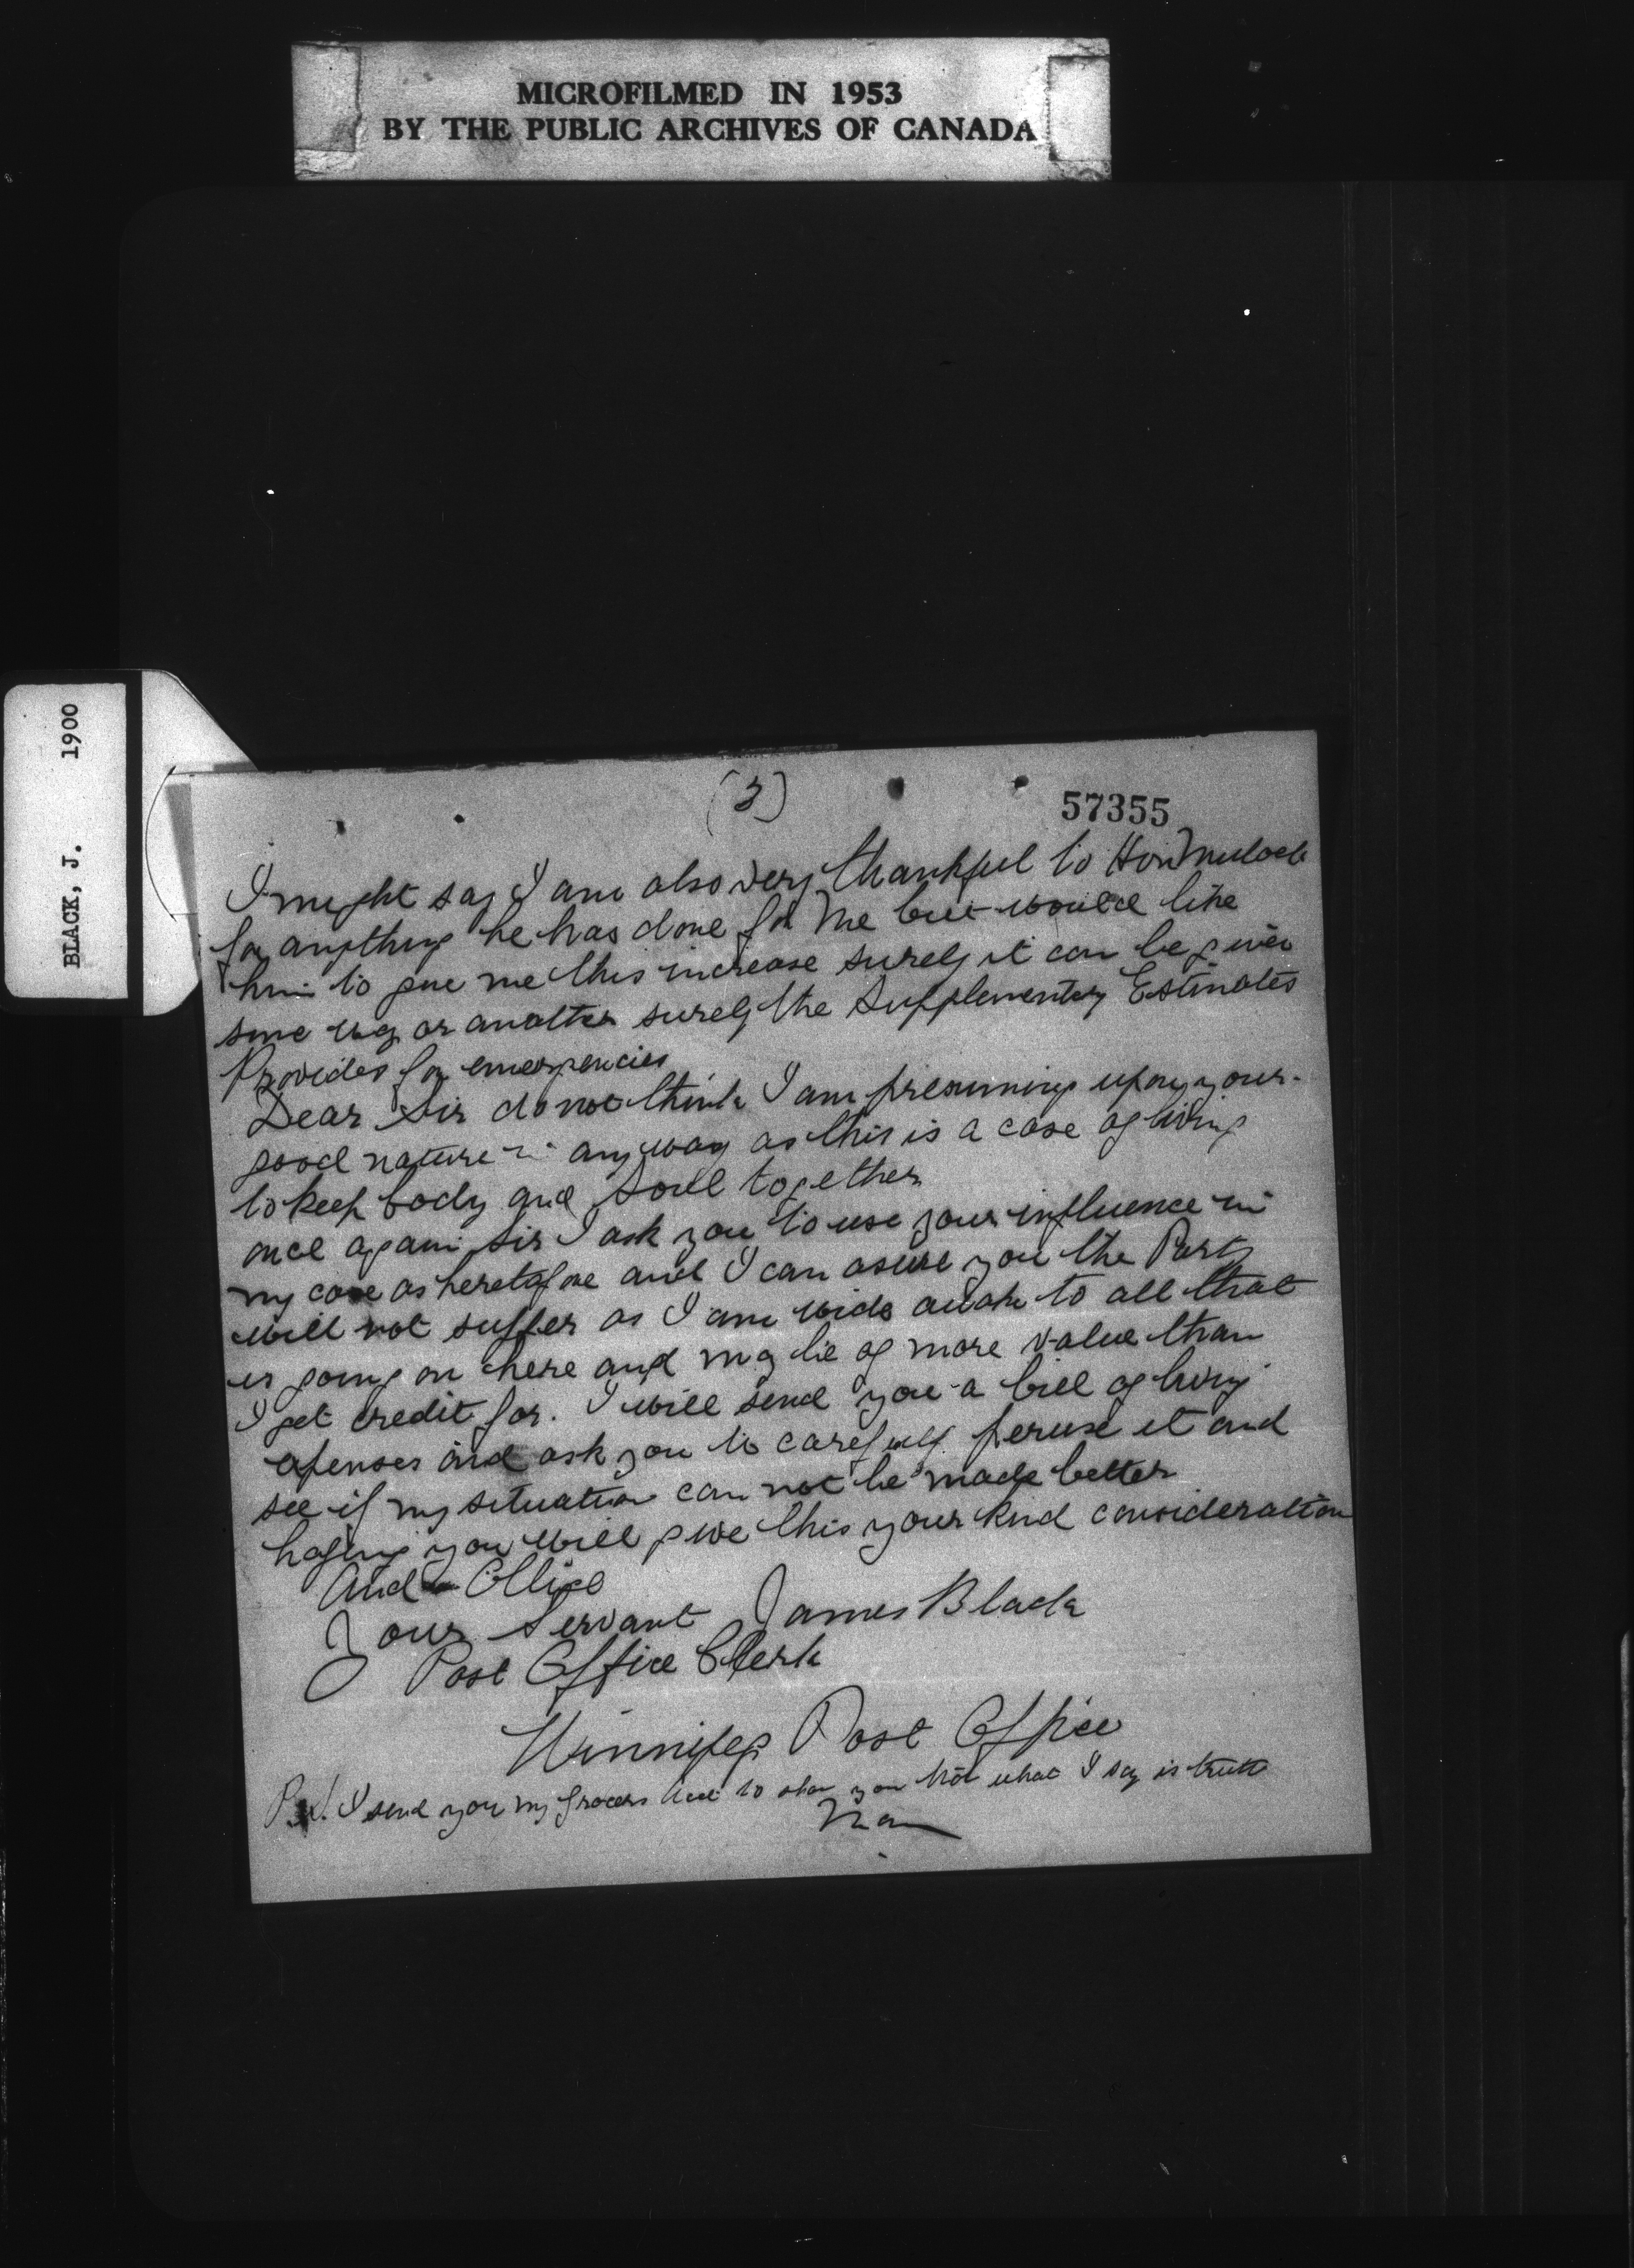 MICROFILMED IN 1953
BY THE PUBLIC ARCHIVES OF CANADA
BLACK, J. 1900
(3)
57355
I might say I am also very thankful to Hon Mulock
for anything he has done for me but would like
him to give me this increase surely it can be given
some way or another surely the Supplementary Estimates
Provides for emergencies
Dear Sir do not think I am presuming upon your
good nature in anyway as this is a case of living
to keep body and soul together
once again Sir I ask you to use your influence in
my case as heretofore and I can asure you the Party
will not suffer as I am wide awake to all that
is going on here and may be of more value than
I get credit for. I will send you a bill of living
expenses and ask you to carefully peruse it and
see if my situation can not be made better
hoping you will give this your kind consideration
And Oblige
Your Servant James Black
Post Office Clerk
Winnipeg Post Office
P.S. I send you my grocers acct to show you that what I say is truth